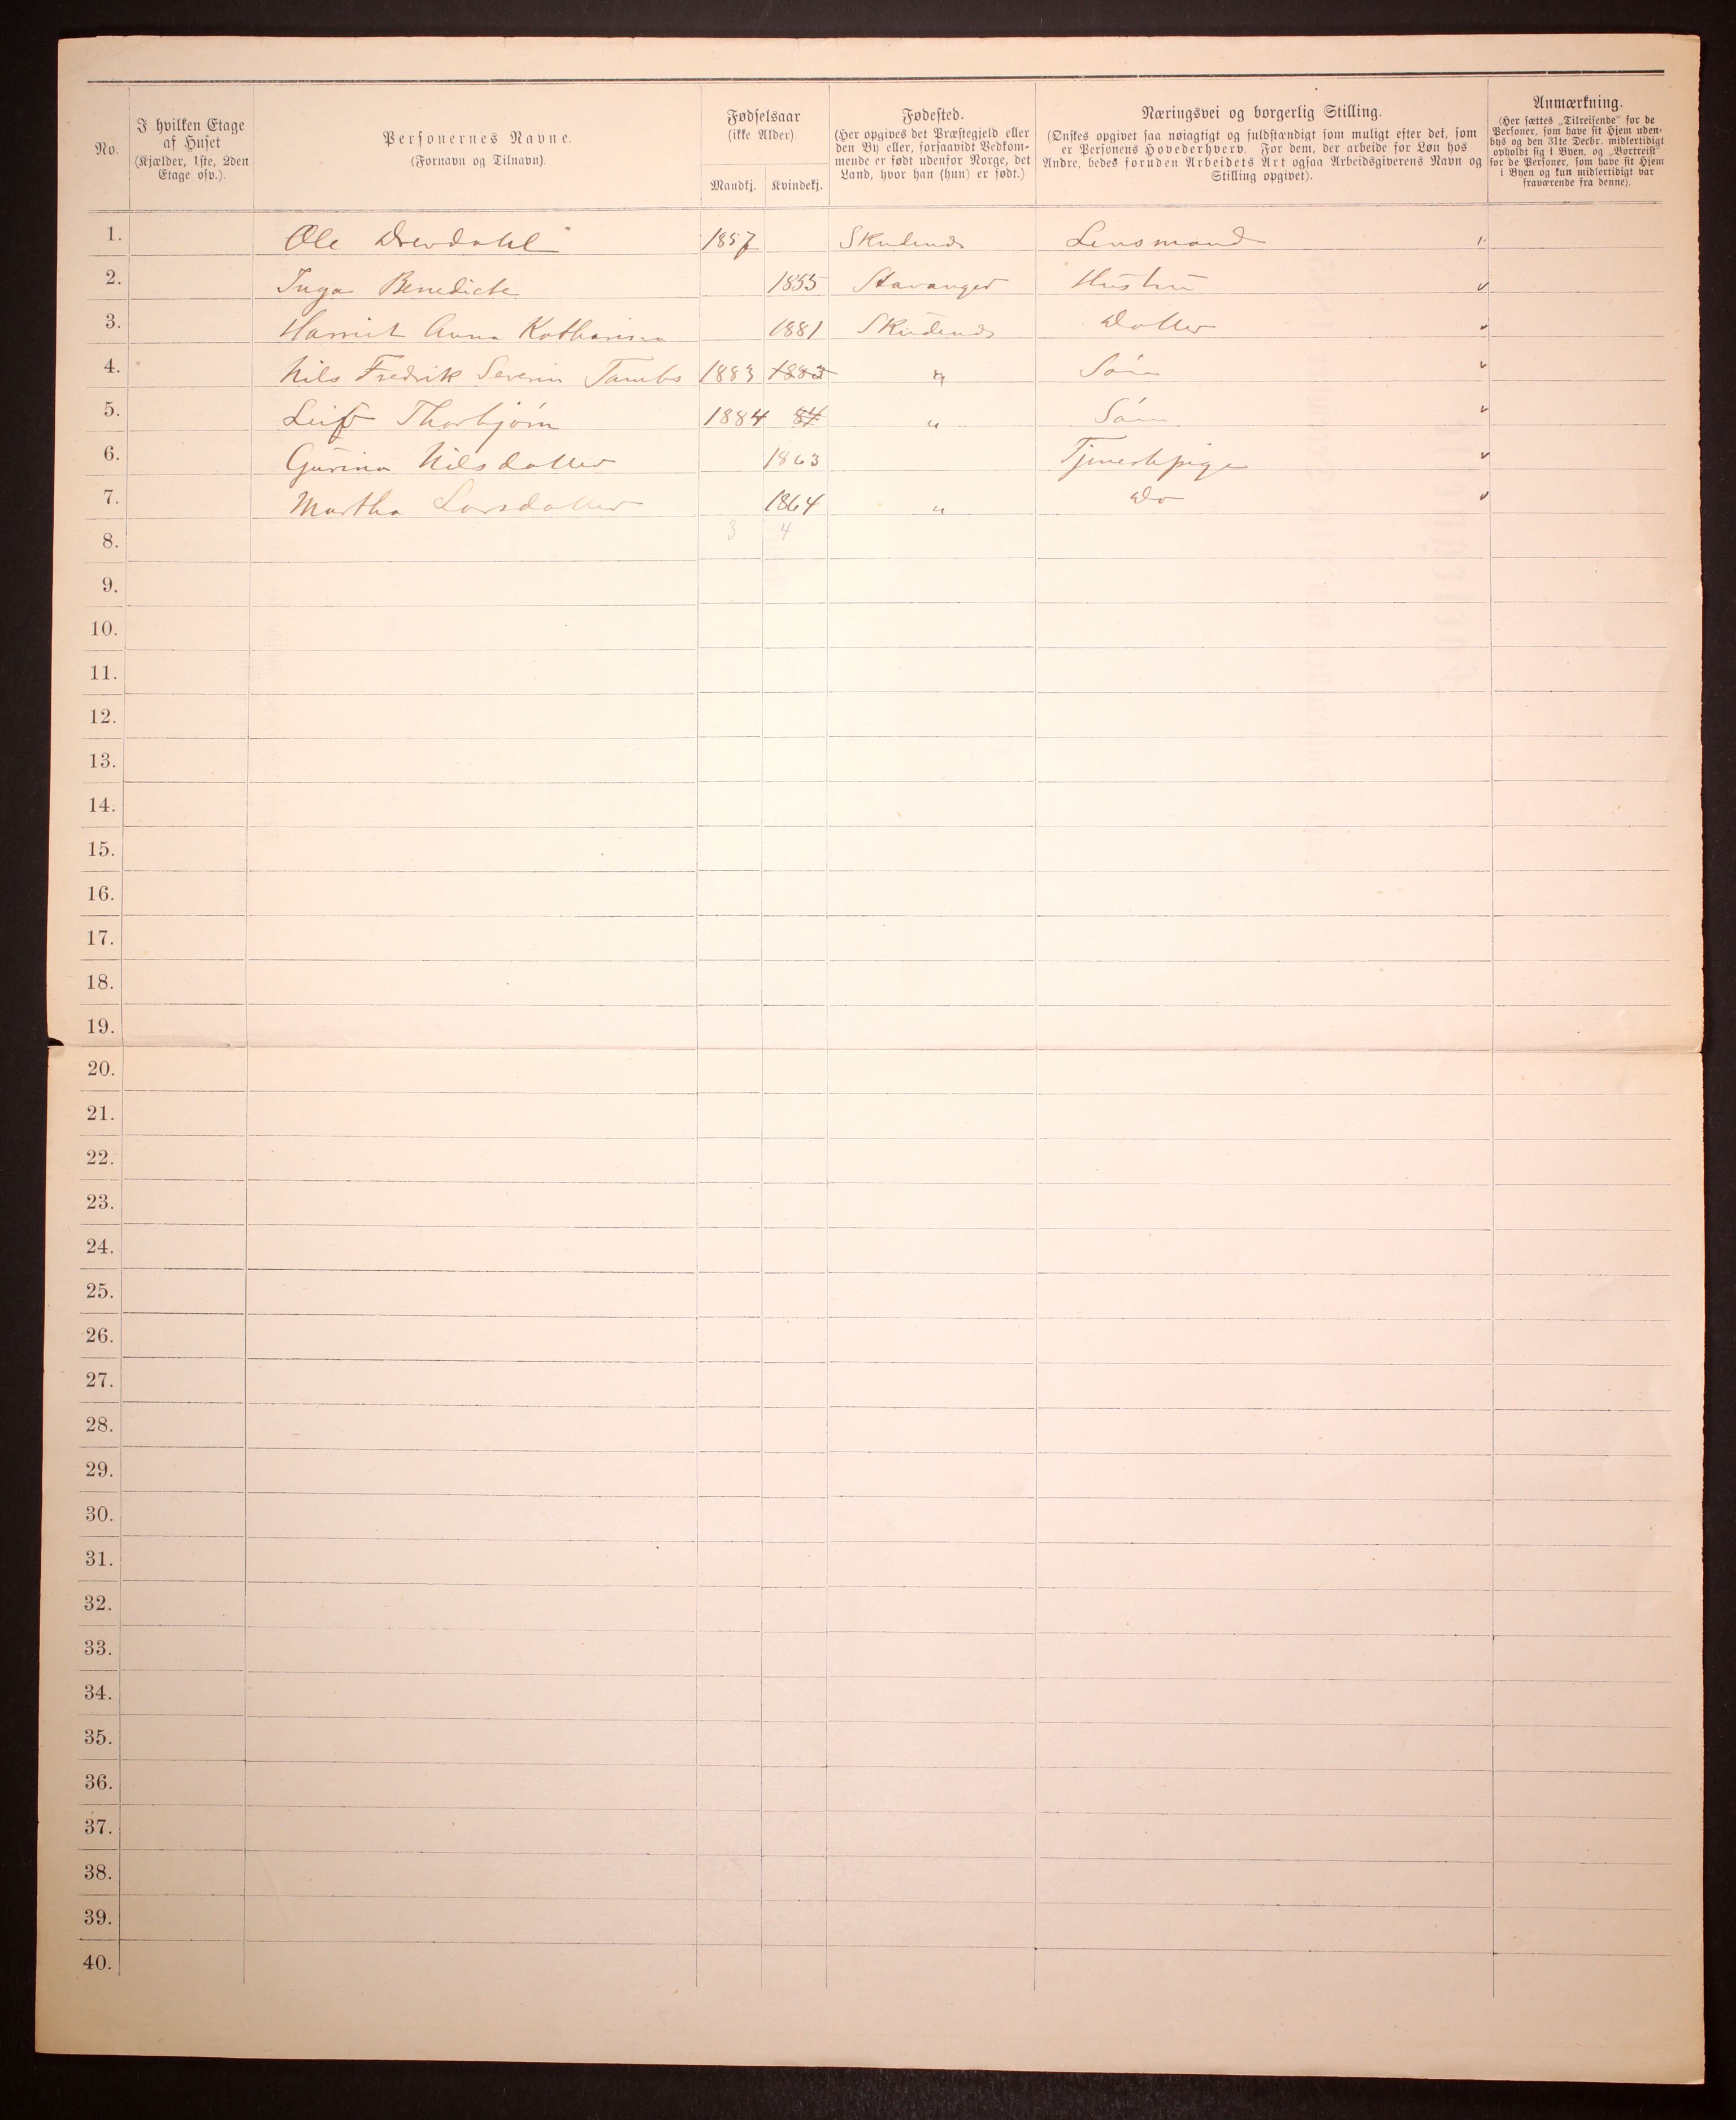 No.
I hvilken Etage af Huset (Kjælder, 1ste, 2den Etage osv.).
Personernes Navne. (Fornavn og Tilnavn).
Fødselsaar (ikke Alder).
Mandkj. Kvindekj.
Fødested. (Her opgives det Præstegjeld eller den By eller, forsaavidt Vedkommende er født udenfor Norge, det Land, hvor han (hun) er født.)
Næringsvei og borgerlig Stilling. (Ønskes opgivet saa nøiagtigt og fuldstændigt som muligt efter det, som er Personens Hovederhverv. For dem, der arbeide for Løn hos Andre, bedes foruden Arbeidets Art ogsaa Arbeidsgiverens Navn og Stilling opgivet).
Anmærkning. (Her sættes „Tilreisende" for de Personer, som have sit Hjem udenbys og den 31te Decbr. midlertidigt opholdt sig i Byen, og „Bortreist" for de Personer, som have sit Hjem i Byen og kun midlertidigt var fraværende fra denne).
1. Ole 1857 Skudenes Lensmand
2. Inga Benedicte 1855 Stavanger Hustru
3. Harriet Anna Katharina 1881 Skudenes Datter
4. Nils Fredrik Severin Tambs 1883 1883 " Søn
5. Leif Thorbjørn 1884 84 " Søn
6. Gurina Nilsdatter 1863 Tjenestepige
7. Martha Larsdatter 1864 " Do
8. 3 4
9.
10.
11.
12.
13.
14.
15.
16.
17.
18.
19.
20.
21.
22.
23.
24.
25.
26.
27.
28.
29.
30.
31.
32.
33.
34.
35.
36.
37.
38.
39.
40.